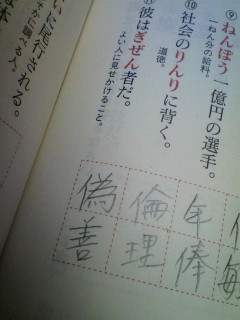 ⑨ねんぽう一億円の選手。
一ねん分の給料。
⑩社会のりんりに背く。
道徳。
彼はぎぜん者だ。
よい人に見せかけること。
いに尾行される。
年俸
倫理
偽善